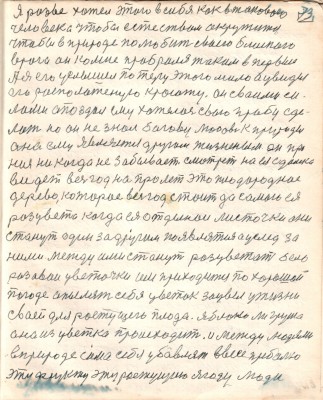 Я разве хотел этого в себя как в такового 73
человека чтобы естеством окружить
чтобы в природе полюбить своего ближнего
врага он ко мне пробрался таким в первый
Я его услышал по телу этого мило и увидел
его расположенную красоту. он своими си-
лами опоздал ему хотелось свою правду сде-
лать но он не знал богову любовь к природе
она ему является другом жизненным он про
ния никогда не забывает смотрит на ея сделки
видят всегда на пролет это плодородное
дерево, которое всегда стоит да само ся
розцвето когда ся отдельной листочки они
станут один за другим появлятся а услед за
ними между ами станут розцветат бело
розовыи цветочки им приходится по хорошей
погоде опылят себя цветок зацвел у жизни
своей для ростущего плода. Яблоко и груша
она из цветка происходит. и между людями
в природе сама себя убавляет в весе
эту фрукту эту ростущию ягоду люди